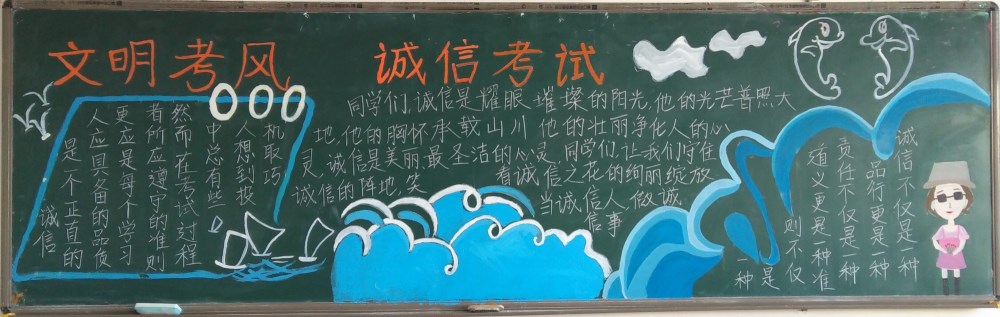 文明考风
诚信考试
诚信
是一个正直的
人应具备的品质
更应是每个学习
者所应遵守的准则
然而在考试过程
中总有些
人想到投
机取巧
同学们,诚信是耀眼璀璨的阳光,他的光芒普照大
地,他的胸怀承载山川 他的壮丽净化人的心
灵 诚信是美丽,最圣洁的心灵,同学们,让我们守住
诚信的阵地,笑看诚信之花的绚丽绽放
当诚信人,做诚
信事
诚信不仅是一种
品行更是一种
责任不仅是一种
道义更是一种准
则不仅
是
一种